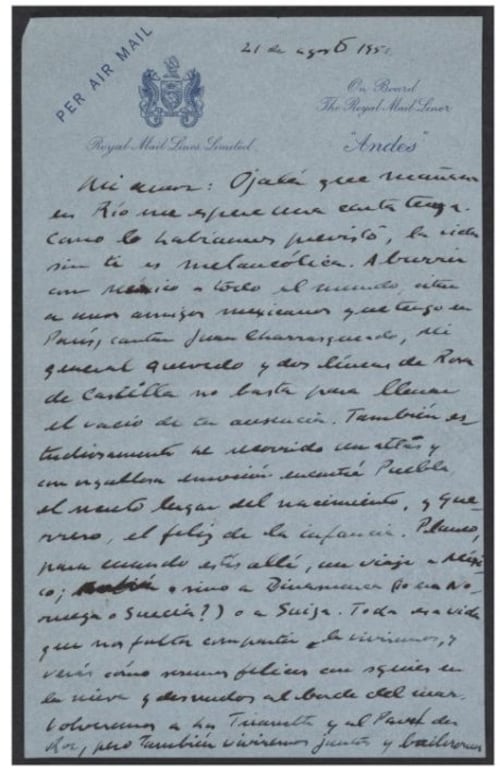 PER AIR MAIL
21 de agosto 195
On Board
The Royal Mail Liner
Royal Mail Lines Limited
"Andes"
Mi amor: Ojalá que mañana
en Río me espere una carta tuya.
Como lo habíamos previsto, la vida
sin ti es melancólica. Aburrir
con México a todo el mundo, citar
a unos amigos mexicanos que tengo en
París, cantar Juan Charrasqueado, Mi
general Quevedo y dos líneas de Rosa
de Castilla no basta para llenar
el vacío de tu ausencia. También es
tudiosamente he recorrido un atlas y
con orgullosa emoción encontré Puebla
el lugar del nacimiento, y Gue-
rrero, el feliz de la infancia. Planeo,
para cuando estés allá, un viaje a Méxi
co; o sino a Dinamarca (o a No-
ruega o Suecia?) o a Suiza. Toda esa vida
que nos falta compartir la viviremos, y
verás cómo seremos felices con squíes en
la nieve y desnudos al borde del mar.
Volveremos a la y al des
, pero también viviremos juntos y bailaremos